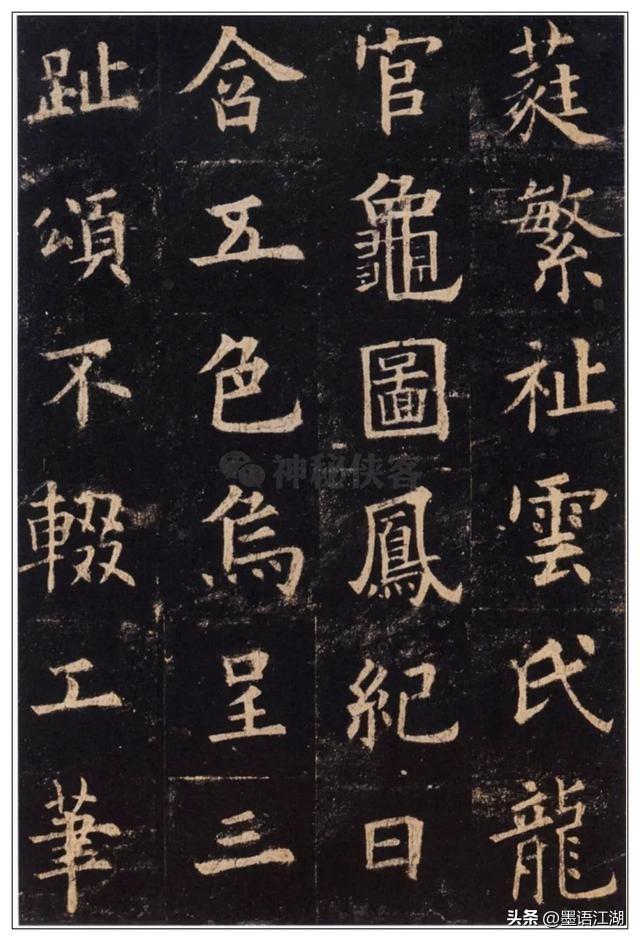 蕤繁祉雲氏龍
官龜圖鳳紀日
含五色烏呈三
趾頌不輟工筆
神秘侠客
头条 @墨语江湖